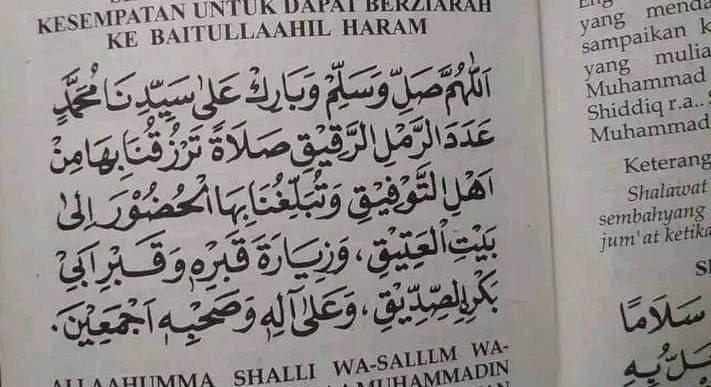 KESEMPATAN UNTUK DAPAT BERZIARAH
KE BAITULLAAHIL HARAM
اَللّٰهُمَّ صَلِّ وَسَلِّمْ وَبَارِكْ عَلٰى سَيِّدِنَا مُحَمَّدٍ
عَدَدَ الرَّمْلِ الرَّقِيْقِ صَلَاةً تَرْزُقُنَا بِهَا مِنْ
اَهْلِ التَّوْفِيْقِ وَتُبَلِّغُنَا بِهَا الْحُضُوْرَ اِلٰى
بَيْتِ الْعَتِيْقِ، وَزِيَارَةَ قَبْرِهٖ وَقَبْرِ اَبِيْ
بَكْرِ الصِّدِّيْقِ، وَعَلٰى آلِهٖ وَصَحْبِهٖ اَجْمَعِيْنَ.
ALLAAHUMMA SHALLI WA-SALLLM WA-
MUHAMMADIN
yang menda
sampaikan k
yang mulia
Muhammad
Shiddiq r.a..
Muhammad
Keterang
Shalawat
sembahyang
jum'at ketika
سَلَامًا